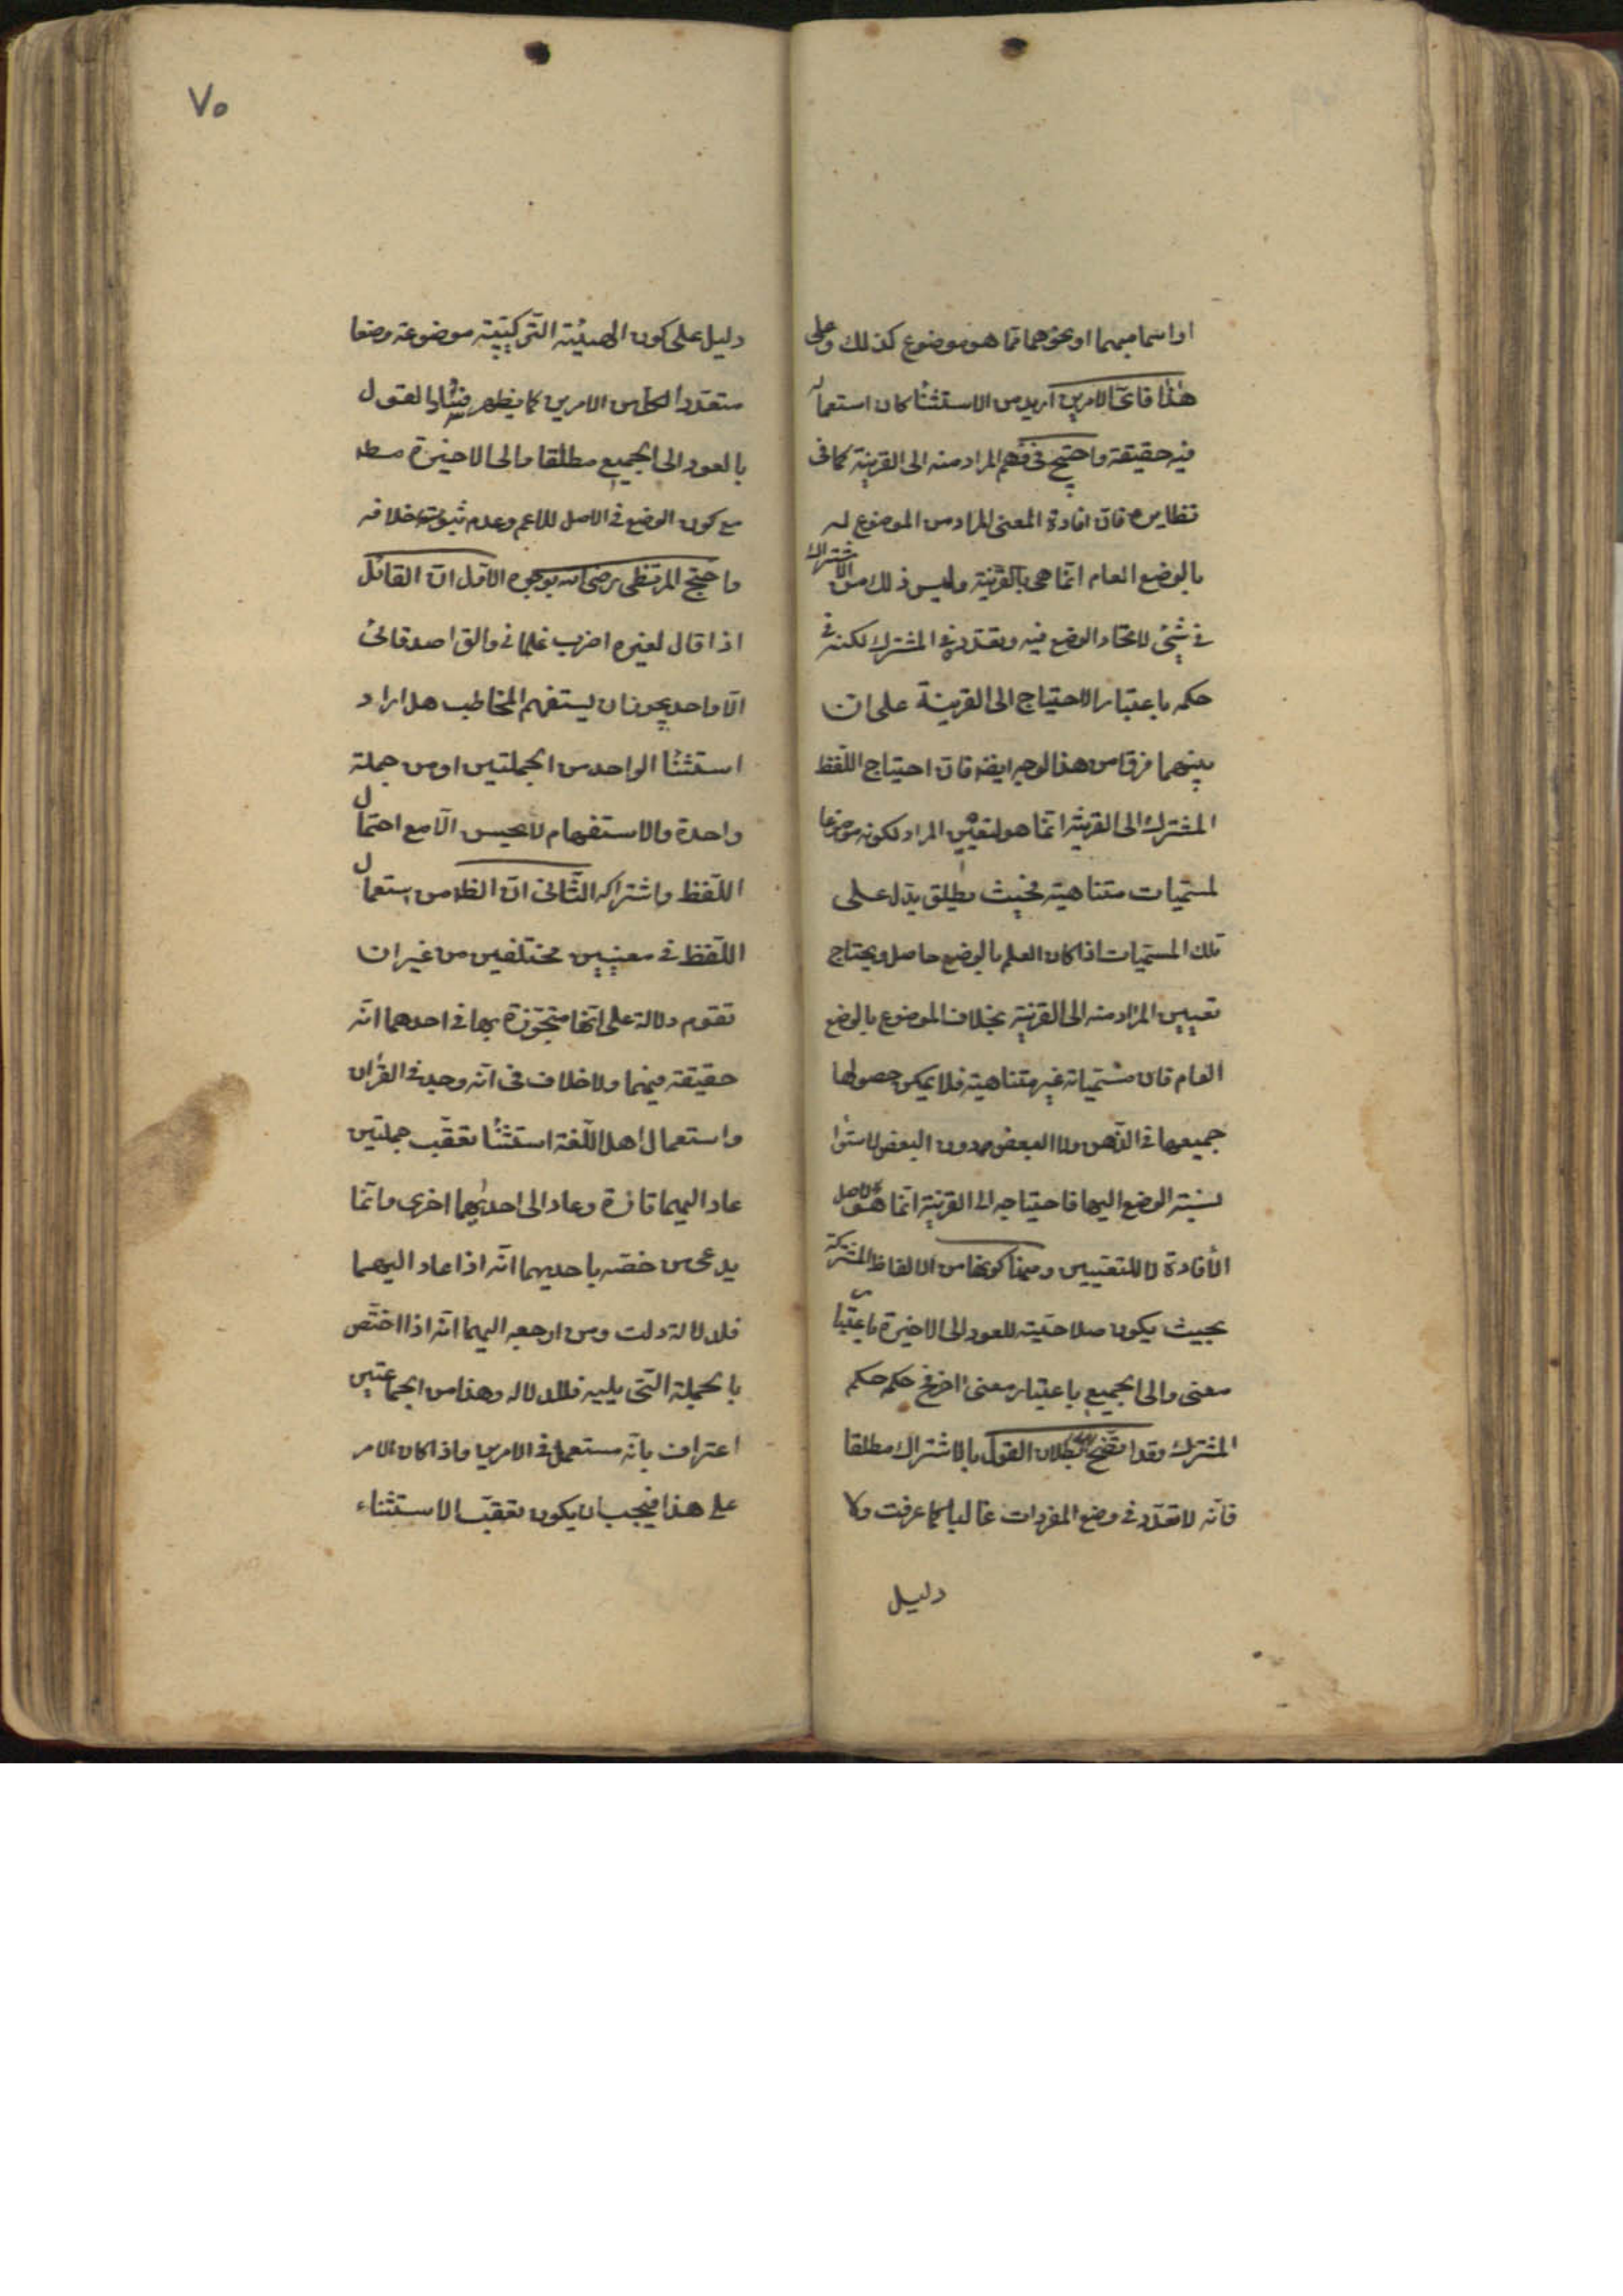 او اسما مبهما او نحوهما مما هو موضوع كذلك وعلى
هذا فاىّ الامرين اريد من الاستثنا كان استعماله
فيه حقيقة واحتيج فى فهم المراد منه الى القرينة كما فى
نظايره فان افادة المعنى المراد من الموضوع له
بالوضع العام انما هى بالقرينة وليس ذلك من الاشتراك
فى شئ لاتحاد الوضع فيه وتعدده فى المشترك لكنه فى
حكمه باعتبار الاحتياج الى القرينة على ان
بينهما فرقا من هذا الوجه ايضه فان احتياج اللفظ
المشترك الى القرينة انما هو لتعيين المراد لكونه موضوعا
لمسميات متناهية فحيث يطلق يدل على
تلك المسميات اذا كان العلم بالوضع حاصل ويحتاج
تعيين المراد منه الى القرينة بخلاف الموضوع بالوضع
العام فان مسمياته غير متناهية فلا يمكن حصولها
جميعها فى الذهن ولا البعض دون البعض لاستوا
نسبة الوضع اليها فاحتياجه الى القرينة انما هو لاصل
الأفادة لا للتعيين ومنها كونها من الالفاظ المشتركة
بحيث يكون صلاحيته للعود الى الاخيرة باعتبار
معنى والى الجميع باعتبار معنى اخر فحكمه حكم
المشترك وقد اتضح بطلان القول بالاشتراك مطلقا
فانه لا تعدد فى وضع المفردات غالبا كما عرفت ولا
دليل
٧٥
دليل على كون الهيئة التركيبية موضوعة وضعا
متعددا لكل من الامرين كما يظهر القول
بالعود الى الجميع مطلقا والى الاخيرة مطه
مع كون الوضع فى الاصل للاعم وعدم ثبوت خلافه
واحتج المرتضى رضى الله بوجوه الاول ان القائل
اذا قال لغيره اضرب غلمانى والق اصدقائى
الا واحدا يجوز ان يستفهم المخاطب هل اراد
استثنا الواحد من الجملتين او من جملة
واحدة والاستفهام لا يحسن الا مع احتمال
اللفظ واشتراكه الثانى ان الظ من استعمال
اللفظ فى معنيين مختلفين من غير ان
تقوم دلالة على انها متجوزة بها فى احدهما انه
حقيقة فيهما ولا خلاف فى انه وجد فى القران
واستعمال اهل اللغة استثنا تعقب جملتين
عاد اليهما تارة وعاد الى احديهما اخرى وانما
يدعى من خصه باحديهما انه اذا عاد اليهما
فلدلالة دلت ومن ارجعه اليهما انه اذا اختص
بالجملة التى يليه فللدلاله وهذا من الجماعتين
اعتراف بانه مستعمل فى الامرين واذا كان الامر
على هذا فيجب ان يكون تعقب الاستثناء